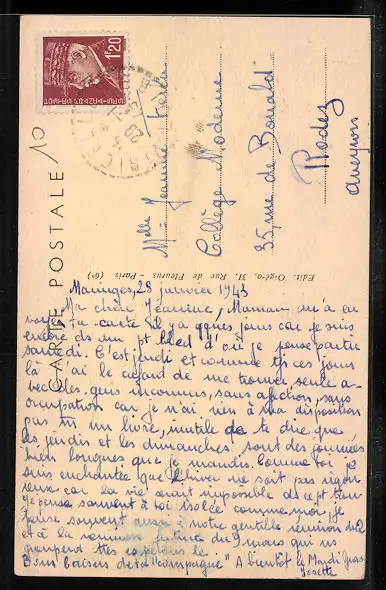 1F20
10
CARTE POSTALE
Edit. O-gé-o, 31, Rue de Fleurus - Paris (6e)
Melle Jeanne
Collège Moderne
35, rue de Bonald
Rodez
Aveyron
Maringes, 28 janvier 1943
Ma chère Jeannine, Maman m'a en
voyé ta carte il y a qques jours car je suis
encore ds un pt bled d'où je pense partir
samedi. C'est jeudi et comme ts ces jours
là j'ai le cafard de me trouver seule a-
vec des gens inconnus, sans affection, sans
occupation car je n'ai rien à ma disposition
pas un livre, inutile de te dire que
les jeudis et les dimanches sont des journées
bien longues que je maudis. Comme toi je
suis enchantée que l'hiver ne soit pas rigou
reux car la vie serait impossible ds cet
Je pense souvent à toi isolée comme moi, je
pense souvent aussi à notre gentille réunion du 2
et à la réunion future du 9 mars qui ns
groupera ttes espérons le
Bons baisers de ta "compagne" A bientôt le Mardi Gras
Josette